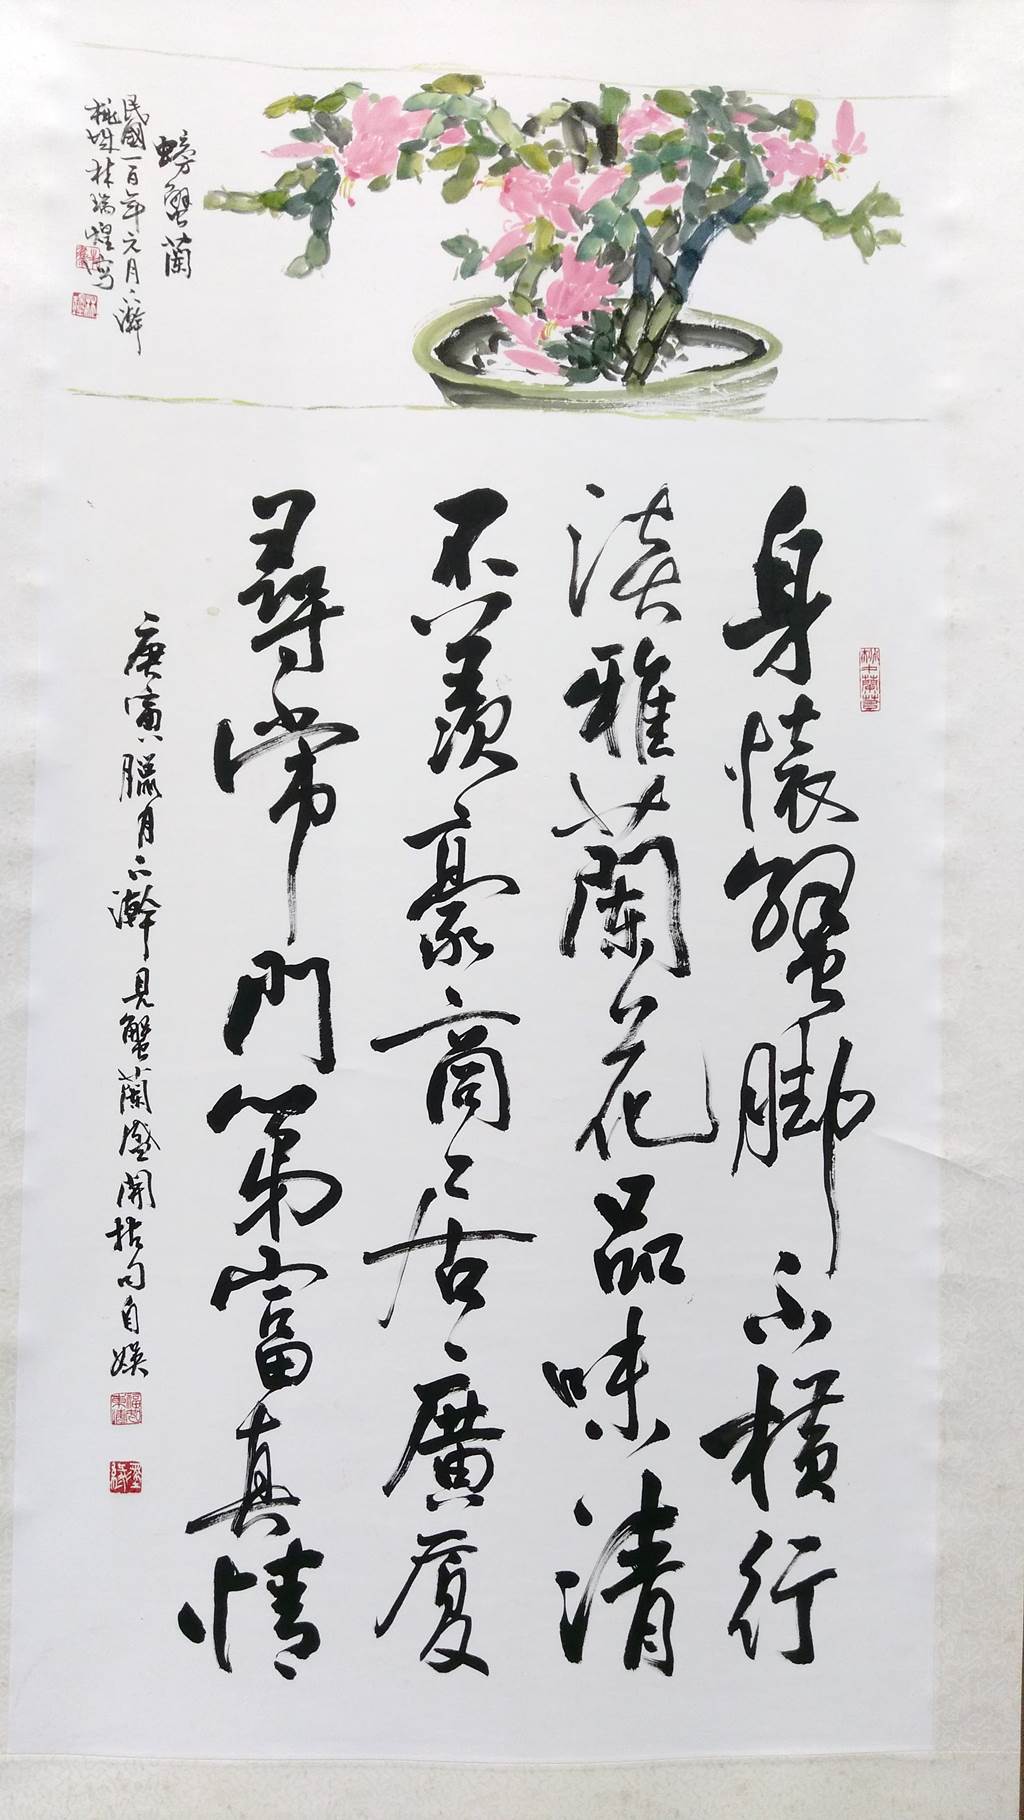 螃蟹蘭
民國一百年元月下澣
林瑞煌寫
身懷蟹腳不横行
淡雅蘭花品味清
不羨豪商居廣廈
尋常門第富真情
庚寅臘月下澣見蟹蘭盛開拈句自娛